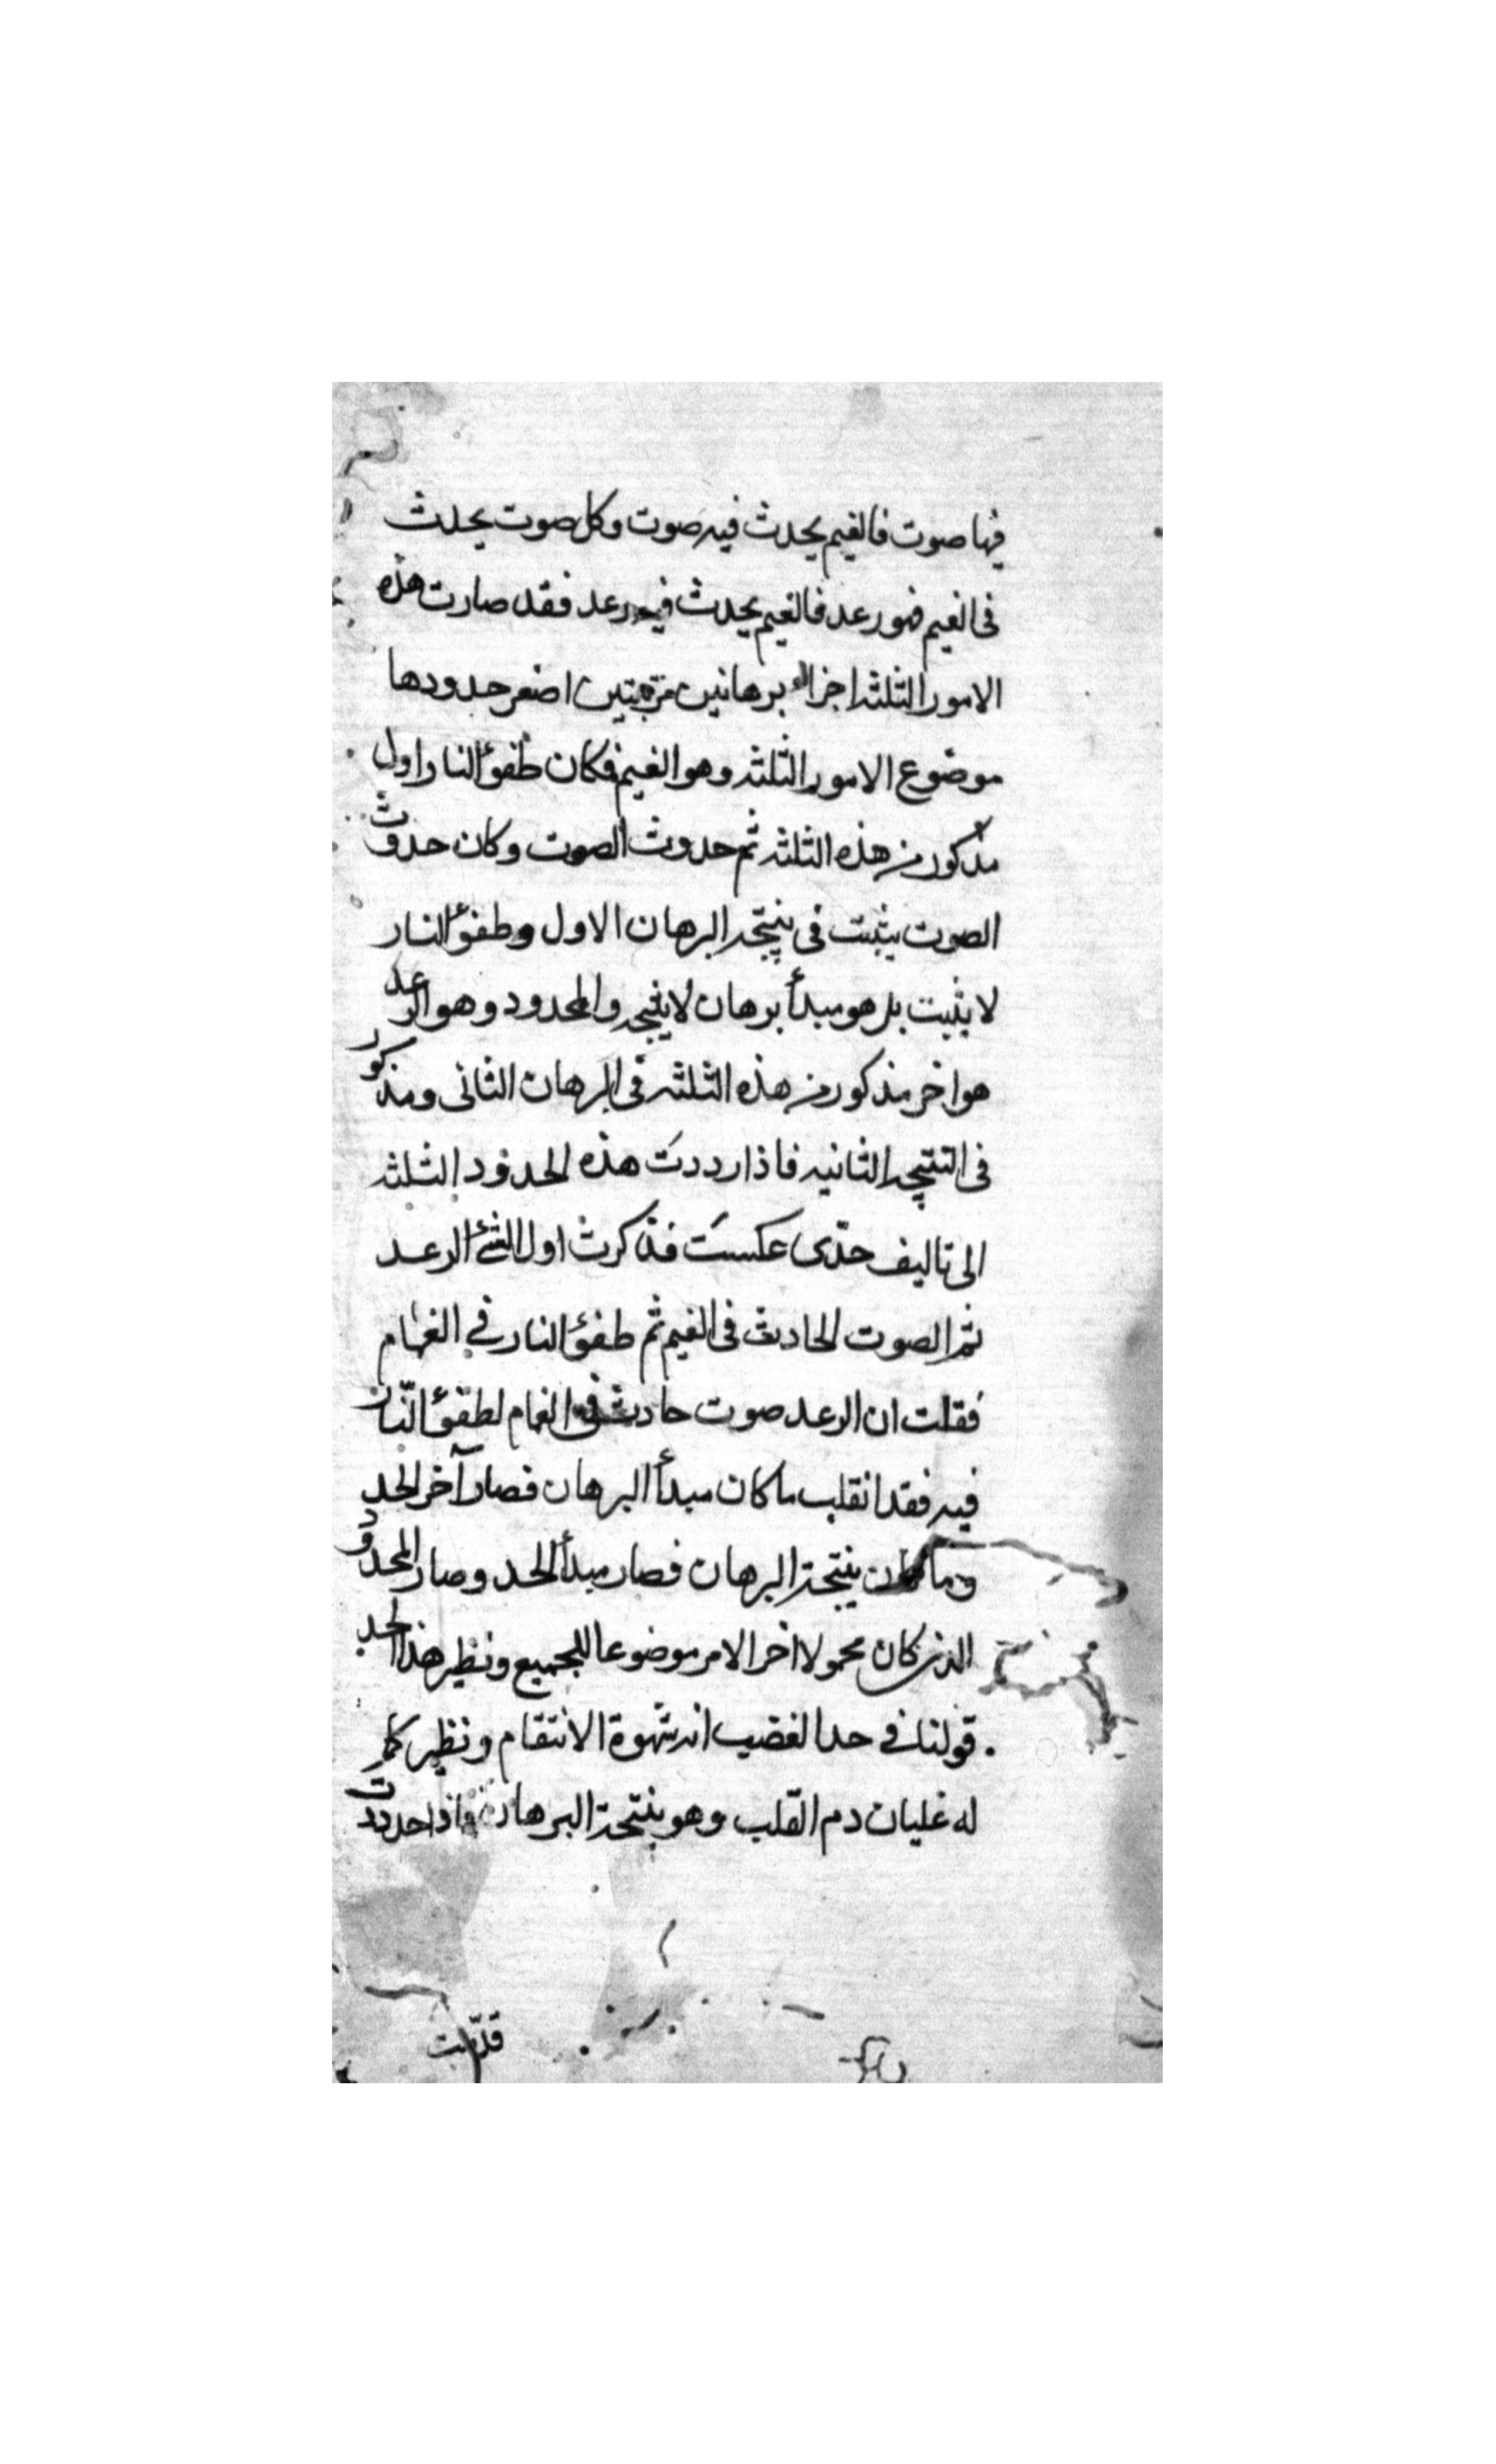 فيها صوت فالغيم يحدث فيه صوت وكل صوت يحدث
فى الغيم فهو رعد فالغيم يحدث فيه رعد فقد صارت هذه
الامور الثلثه اجزاء برهانين مرتبتين اصغر حدودها
موضوع الامور الثلثه وهو الغيم فكان طفؤ النار اول
مذكور من هذه الثلثه ثم حدوث الصوت وكان حدوث
الصوت يثبت فى نتيجه البرهان الاول وطفؤ النار
لا يثبت بل هو مبدأ برهان لا نتيجه والمحدود وهو الرعد
هو اخر مذكور من هذه الثلثه فى البرهان الثانى ومذكور
فى النتيجه الثانيه فاذا رددت هذه الحدود الثلثه
الى تاليف حدّى عكست فذكرت اول الشئ الرعد
ثم الصوت الحادث فى الغيم ثم طفؤ النار في الغمام
فقلت ان الرعد صوت حادث فى الغمام لطفؤ النّار
فيه فقد انقلب ما كان مبدأ البرهان فصار آخر الحد
وما كان نتيجة البرهان فصار مبدأ الحد وصار المحدود
الذى كان محمولا اخر الامر موضوعا للجميع ونظير هذا الحد
قولنا في حد الغضب انه شهوة الانتقام ونظير كمال
له غليان دم القلب وهو نتيجة البرهان فاذا حددت
قدّمت